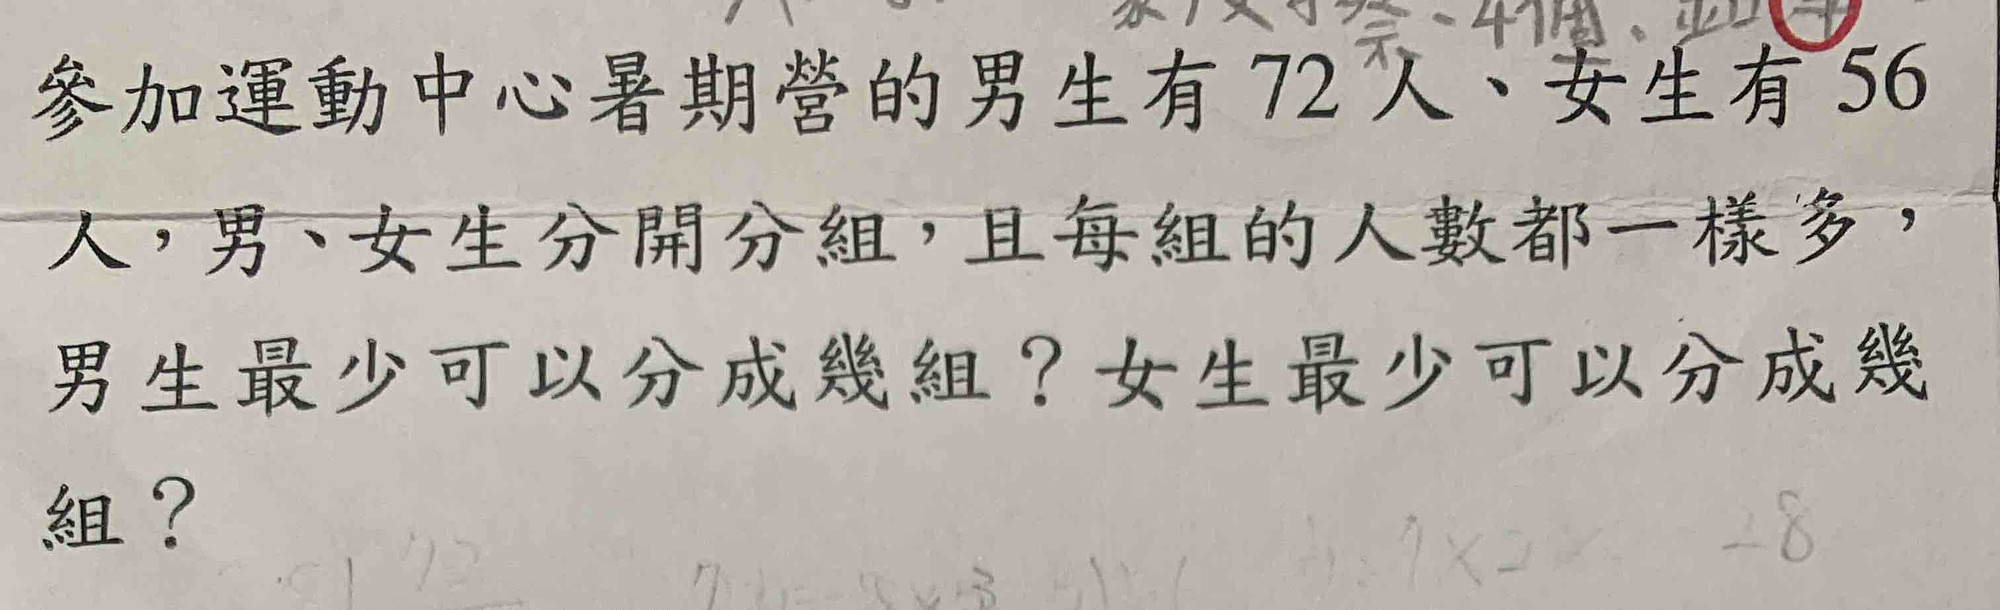 參加運動中心暑期營的男生有72人、女生有56
人，男、女生分開分組，且每組的人數都一樣多，
男生最少可以分成幾組？女生最少可以分成幾
組？